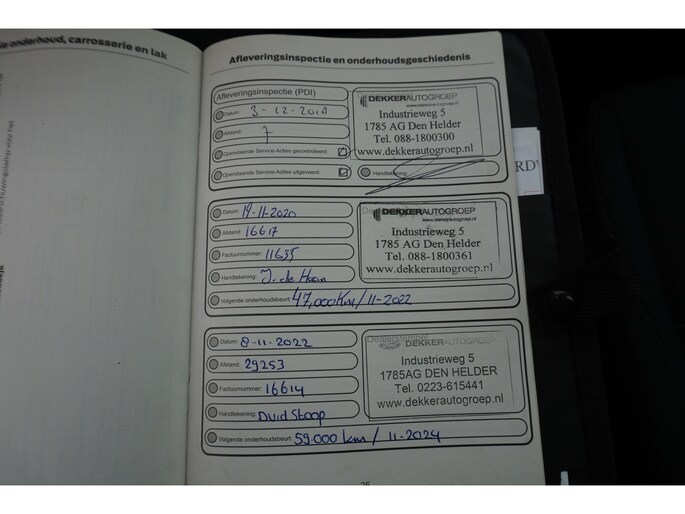 ie onderhoud, carrosserie en lak
Afleveringsinspectie en onderhoudsgeschiedenis
Afleveringsinspectie (PDI)
Datum: 3-12-2018
Afstand: 7
Openstaande Service-Acties gecontroleerd:
Openstaande Service-Acties uitgevoerd:
DEKKERAUTOGROEP
www.dekkerautogroep.nl
Industrieweg 5
1785 AG Den Helder
Tel. 088-1800300
www.dekkerautogroep.nl
Handtekening:
RD
Datum: 19-11-2020
Afstand: 16617
Factuurnummer: 11635
Handtekening: J. de Haan
Volgende onderhoudsbeurt: 47,000km/11-2022
DEKKERAUTOGROEP
www.dekkerautogroep.nl
Industrieweg 5
1785 AG Den Helder
Tel. 088-1800361
www.dekkerautogroep.nl
Datum: 8-11-2022
Afstand: 29253
Factuurnummer: 16614
Handtekening: Dvid Stoop
Volgende onderhoudsbeurt: 59.000 km / 11-2024
DEKKERAUTOGROEP
Industrieweg 5
1785AG DEN HELDER
Tel. 0223-615441
www.dekkerautogroep.nl